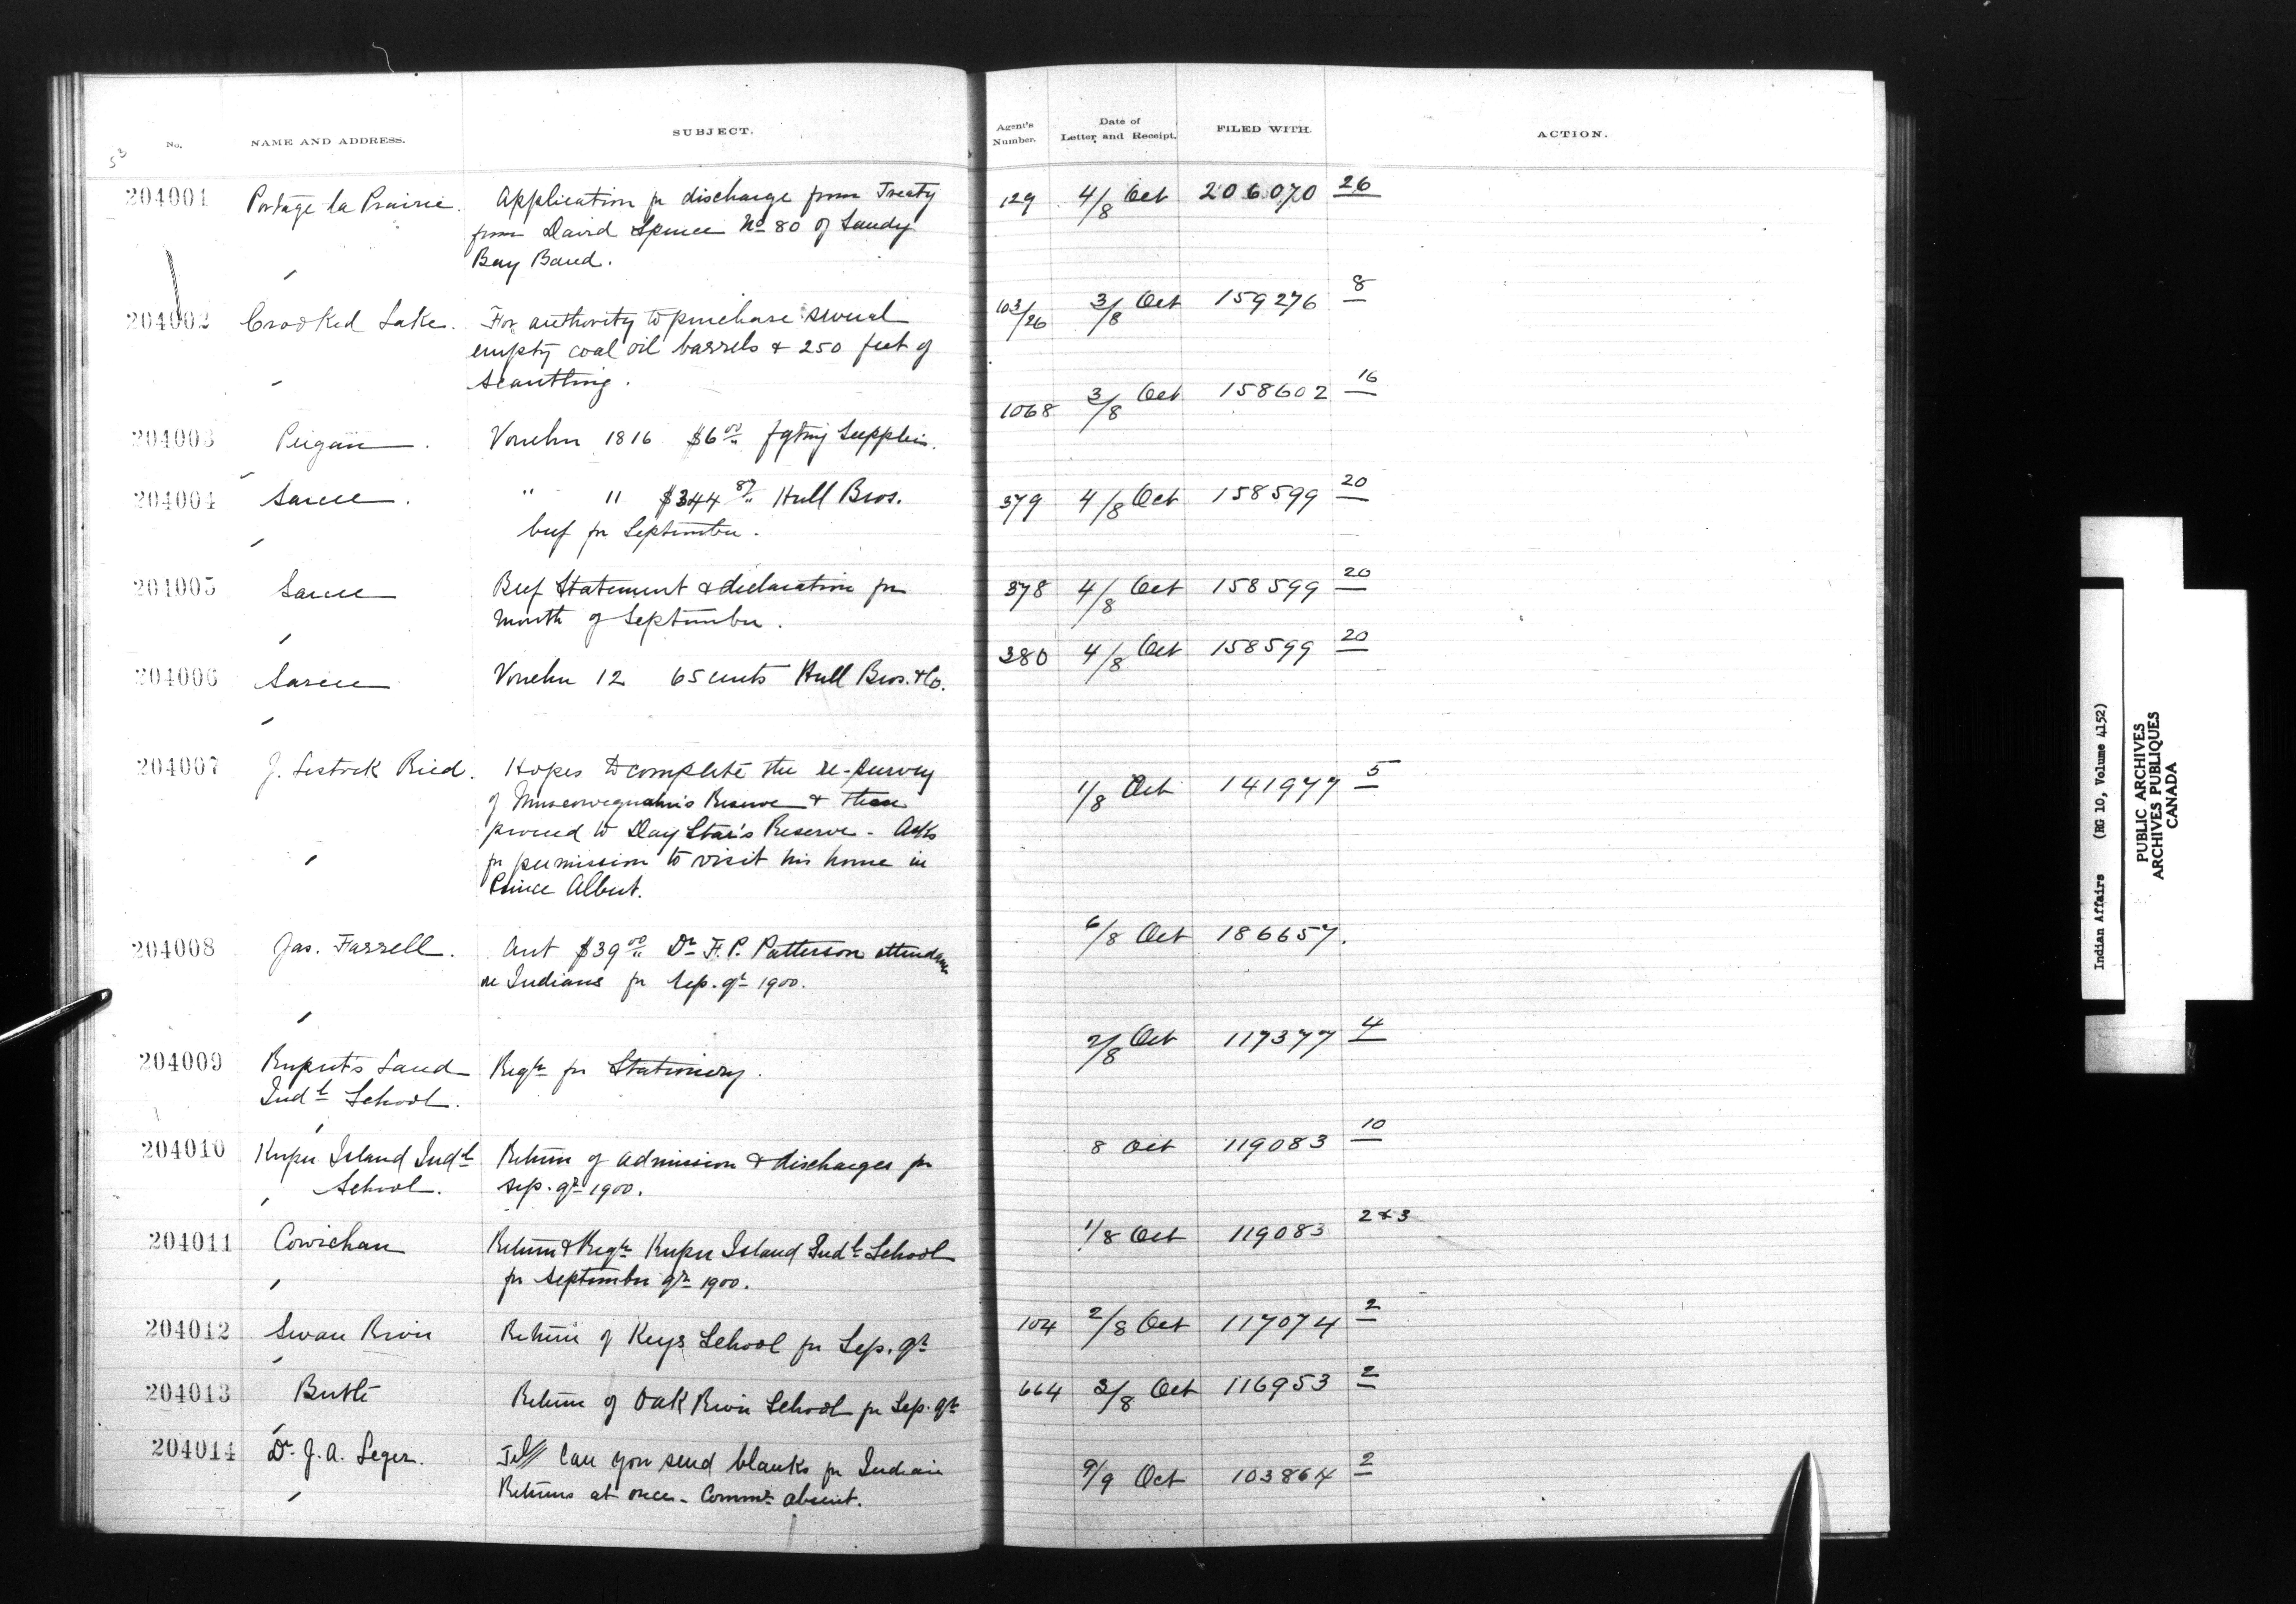 No.
NAME AND ADDRESS.
SUBJECT.
Agent's Number.
Date of Letter and Receipt.
FILED WITH.
ACTION.
53
204001 Portage la Prairie. Application fr discharge from Treaty 129 4/8 Oct 206070 26
from David Spence No 80 of Sandy
Bay Band.
204002 Crooked Lake. For authority to purchase several 103/26 3/8 Oct 159276 8
empty coal oil barrels & 250 feet of
scantling.
204003 Peigan. Voucher 1816 $6 00 fgting Supplies. 1068 3/8 Oct 158602 16
204004 Sarcee. " " $344 87 Hull Bros. 379 4/8 Oct 158599 20
beef for September.
204005 Sarcee Beef Statement & declaration for 378 4/8 Oct 158599 20
month of September.
204006 Sarcee Voucher 12 65 cents Hull Bros. & Co. 380 4/8 Oct 158599 20
204007 J. Lestock Reid. Hopes to complete the re-survey 1/8 Oct 141977 5
of Muscowequahn's Reserve & then
proceed to Day Star's Reserve - Asks
for permission to visit his home in
Prince Albert.
204008 Jas. Farrell. Act $39 00 Dr F. P. Patterson attendance 6/8 Oct 186657.
on Indians for Sep. qr 1900.
204009 Ruperts Land Reqn for Stationery. 2/8 Oct 117377 4
Indl School.
204010 Kuper Island Indl Return of admission & discharges for 8 Oct 119083 10
School. Sep. qr 1900.
204011 Cowichan Return & Reqn Kuper Island Indl School 1/8 Oct 119083 2 & 3
for September qr 1900.
204012 Swan River Return of Keys School for Sep. qr 104 2/8 Oct 117074 2
204013 Birtle Return of Oak River School for Sep. qr 664 3/8 Oct 116953 2
204014 Dr J. A. Leger. Tel// Can you send blanks for Indian 9/9 Oct 103864 2
Returns at once - Commr absent.
Indian Affairs (RG 10, Volume 4152)
PUBLIC ARCHIVES
ARCHIVES PUBLIQUES
CANADA